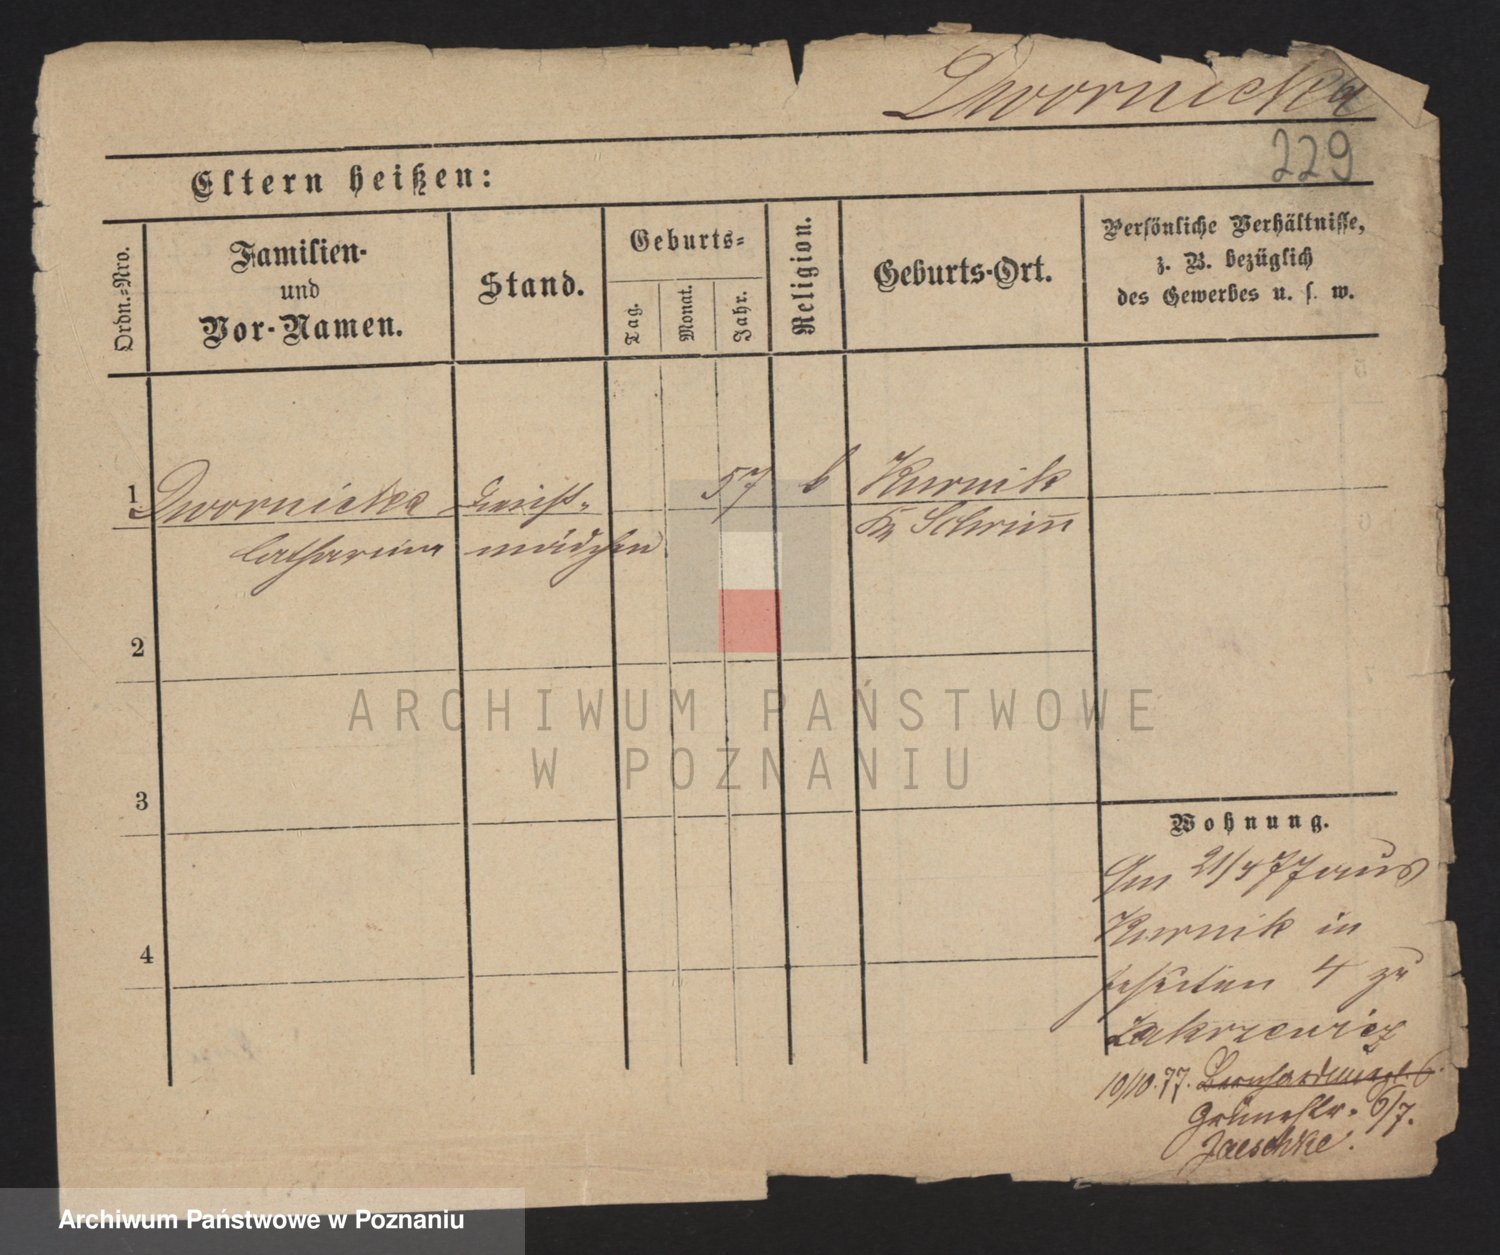 Dwornicka
229
Eltern heißen:
Ordn.-Nro.
Familien-
und
Vor-Namen.
Stand.
Geburts-
Tag.
Monat.
Jahr.
Religion.
Geburts-Ort.
Persönliche Verhältnisse,
z. B. bezüglich
des Gewerbes u. s. w.
1 Dwornicka Dienst- 57 k Kurnik
Catharina mädchen Kr Schrimm
2
3
4
Wohnung.
Am 21/4 77 aus
Kurnik in
4 zu
Zakrzewicz
10/10.77. Bernhardinerpl. 6.
Grünestr. 6/7.
Jaeschke.
ARCHIWUM PAŃSTWOWE
W POZNANIU
Archiwum Państwowe w Poznaniu